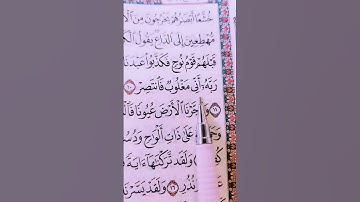 خُشَّعًا أَبْصَٰرُهُمْ يَخْرُجُونَ مِنَ
مُّهْطِعِينَ إِلَى ٱلدَّاعِ يَقُولُ
قَبْلَهُمْ قَوْمُ نُوحٍ فَكَذَّبُوا۟ عَبْدَنَا
رَبَّهُۥٓ أَنِّى مَغْلُوبٌ فَٱنتَصِرْ ١٠
١١ وَفَجَّرْنَا ٱلْأَرْضَ عُيُونًا
عَلَىٰ ذَاتِ أَلْوَٰحٍ وَدُسُرٍ
وَلَقَد تَّرَكْنَٰهَآ ءَايَةً
وَنُذُرِ ١٦ وَلَقَدْ يَسَّرْنَا